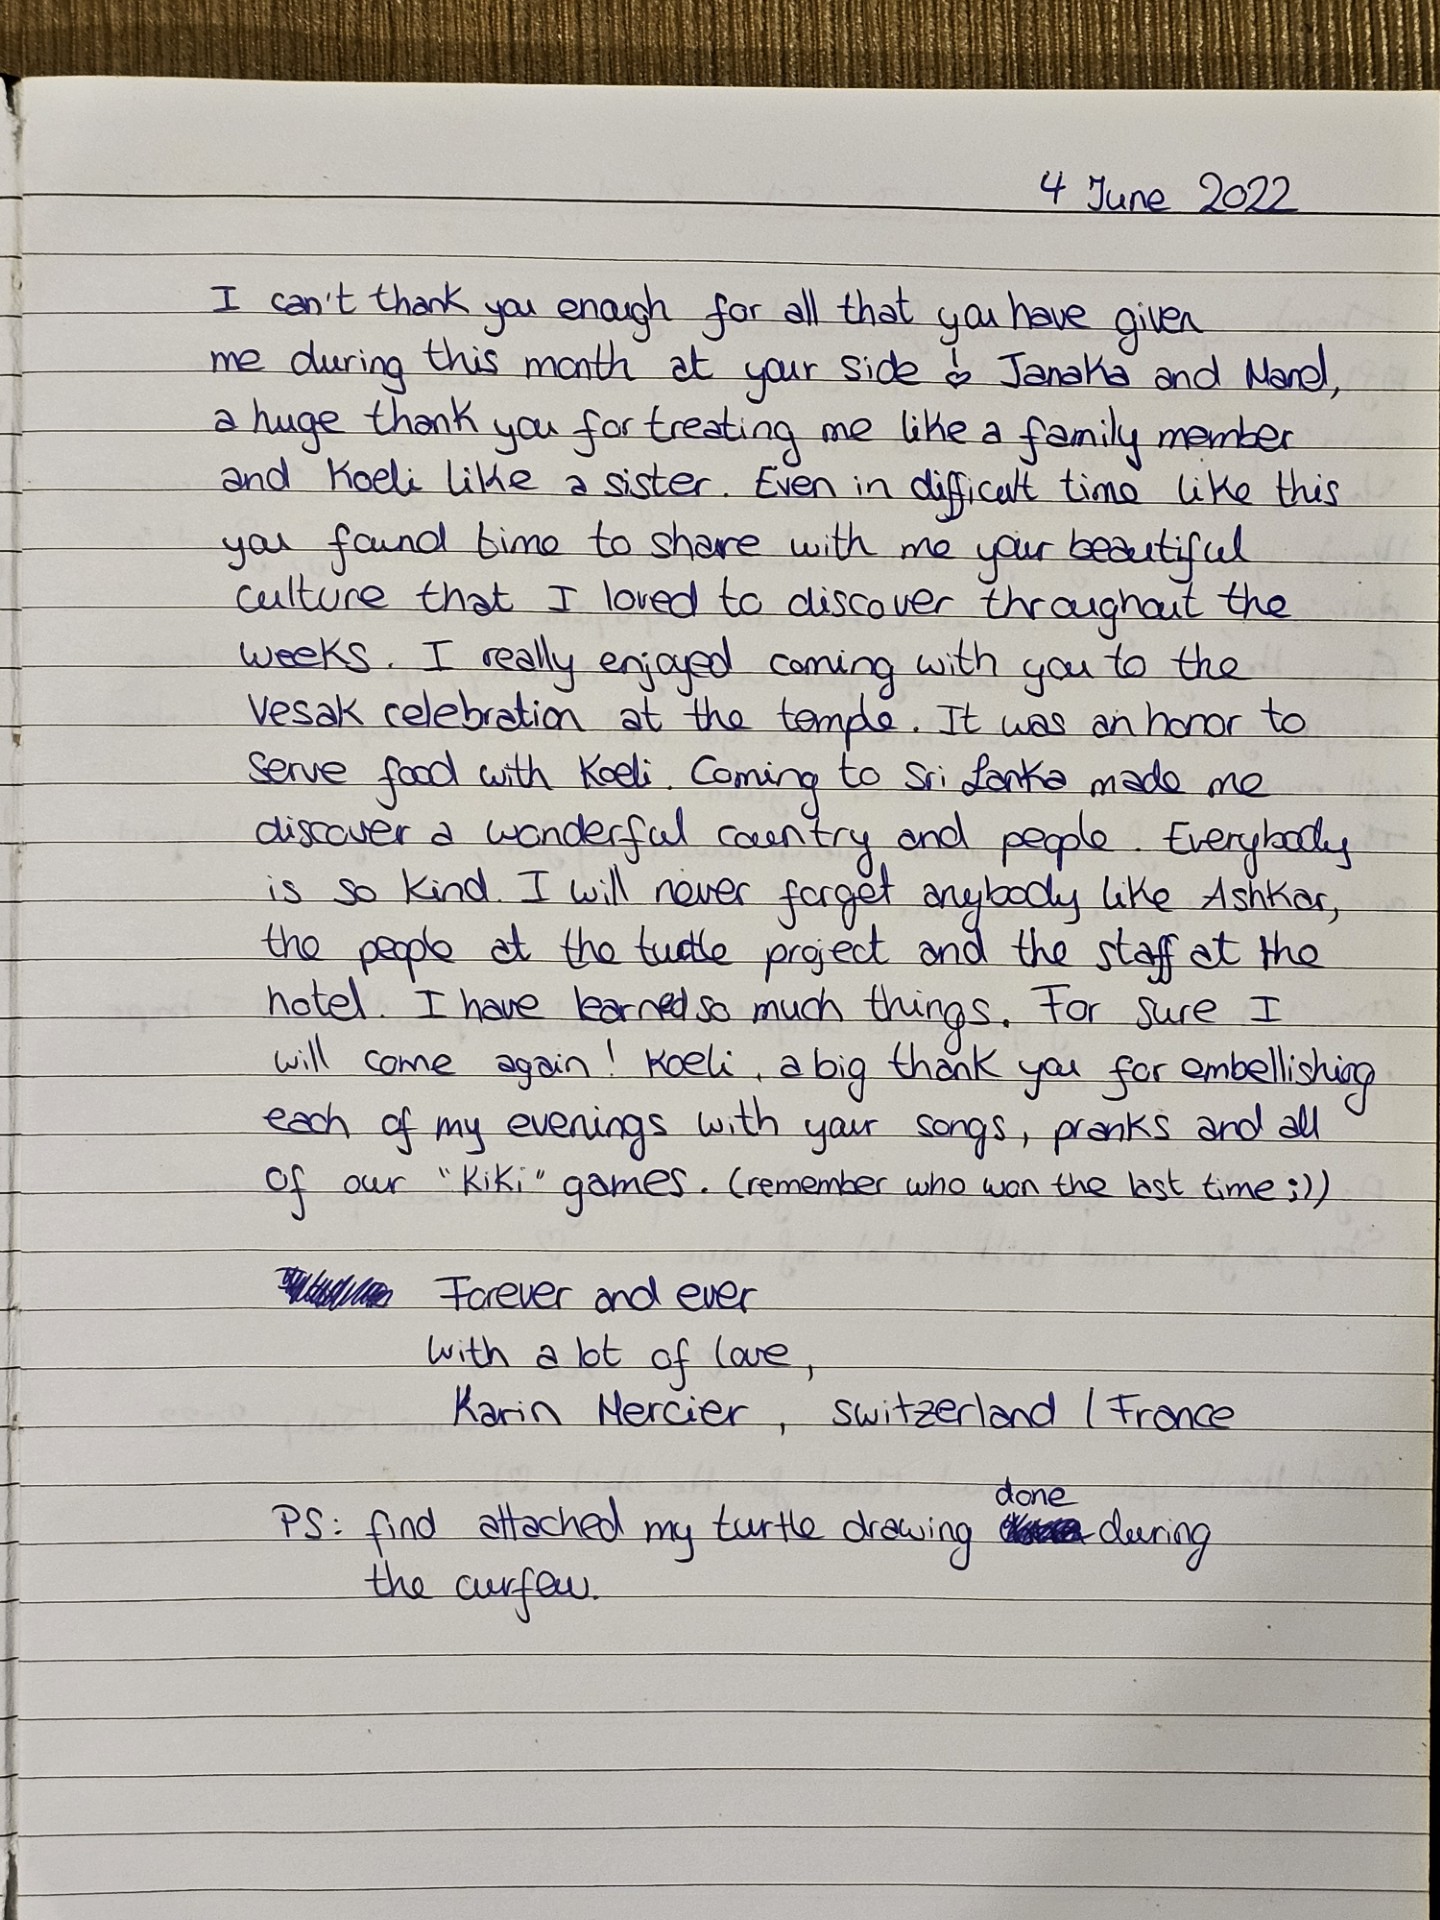 4 June 2022
I can't thank you enough for all that you have given
me during this month at your side ! Janaka and Manel,
a huge thank you for treating me like a family member
and Koeli like a sister. Even in difficult time like this
you found time to share with me your beautiful
culture that I loved to discover throughout the
weeks. I really enjoyed coming with you to the
Vesak celebration at the temple. It was an honor to
serve food with Koeli. Coming to Sri Lanka made me
discover a wonderful country and people. Everybody
is so kind. I will never forget anybody like Ashkar,
the people at the turtle project and the staff at the
hotel. I have learned so much things. For sure I
will come again! Koeli, a big thank you for embellishing
each of my evenings with your songs, pranks and all
of our "Kiki" games. (remember who won the last time ;))
Forever and ever
with a lot of love,
Karin Mercier, Switzerland / France
PS: find attached my turtle drawing done during
the curfew.